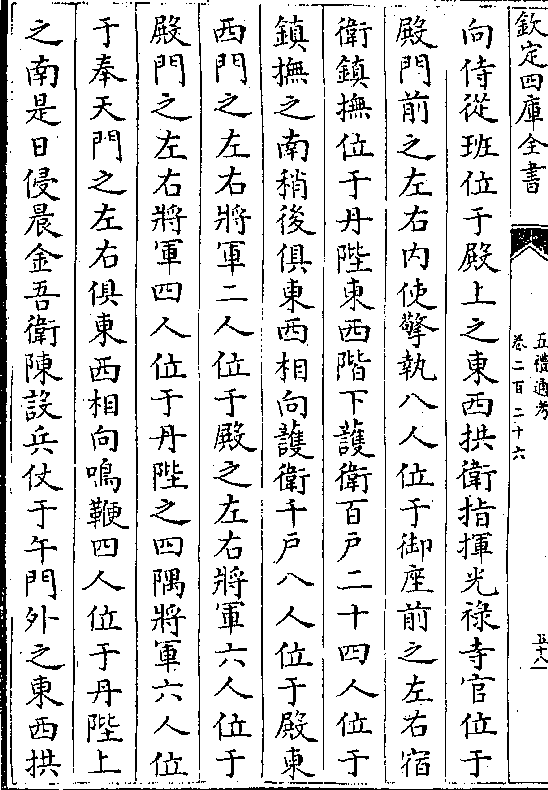 欽定四庫全書
五禮通考
卷二百二十六
五十八
向侍從班位于殿上之東西拱衛指揮光祿寺官位于
殿門前之左右內使擎執八人位于御座前之左右宿
衛鎮撫位于丹陛東西階下護衛百戶二十四人位于
鎮撫之南稍後俱東西相向護衛千戶八人位于殿東
西門之左右將軍二人位于殿之左右將軍六人位于
殿門之左右將軍四人位于丹陛之四隅將軍六人位
于奉天門之左右俱東西相向鳴鞭四人位于丹陛上
之南是日侵晨金吾衛陳設兵仗于午門外之東西拱